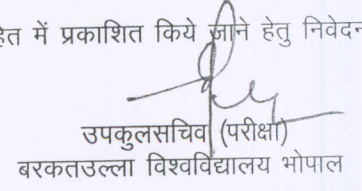 में प्रकाशित किये जाने हेतु
उपकुलसचिव (परीक्षा)
बरकतउल्ला विश्वविद्यालय भोपाल